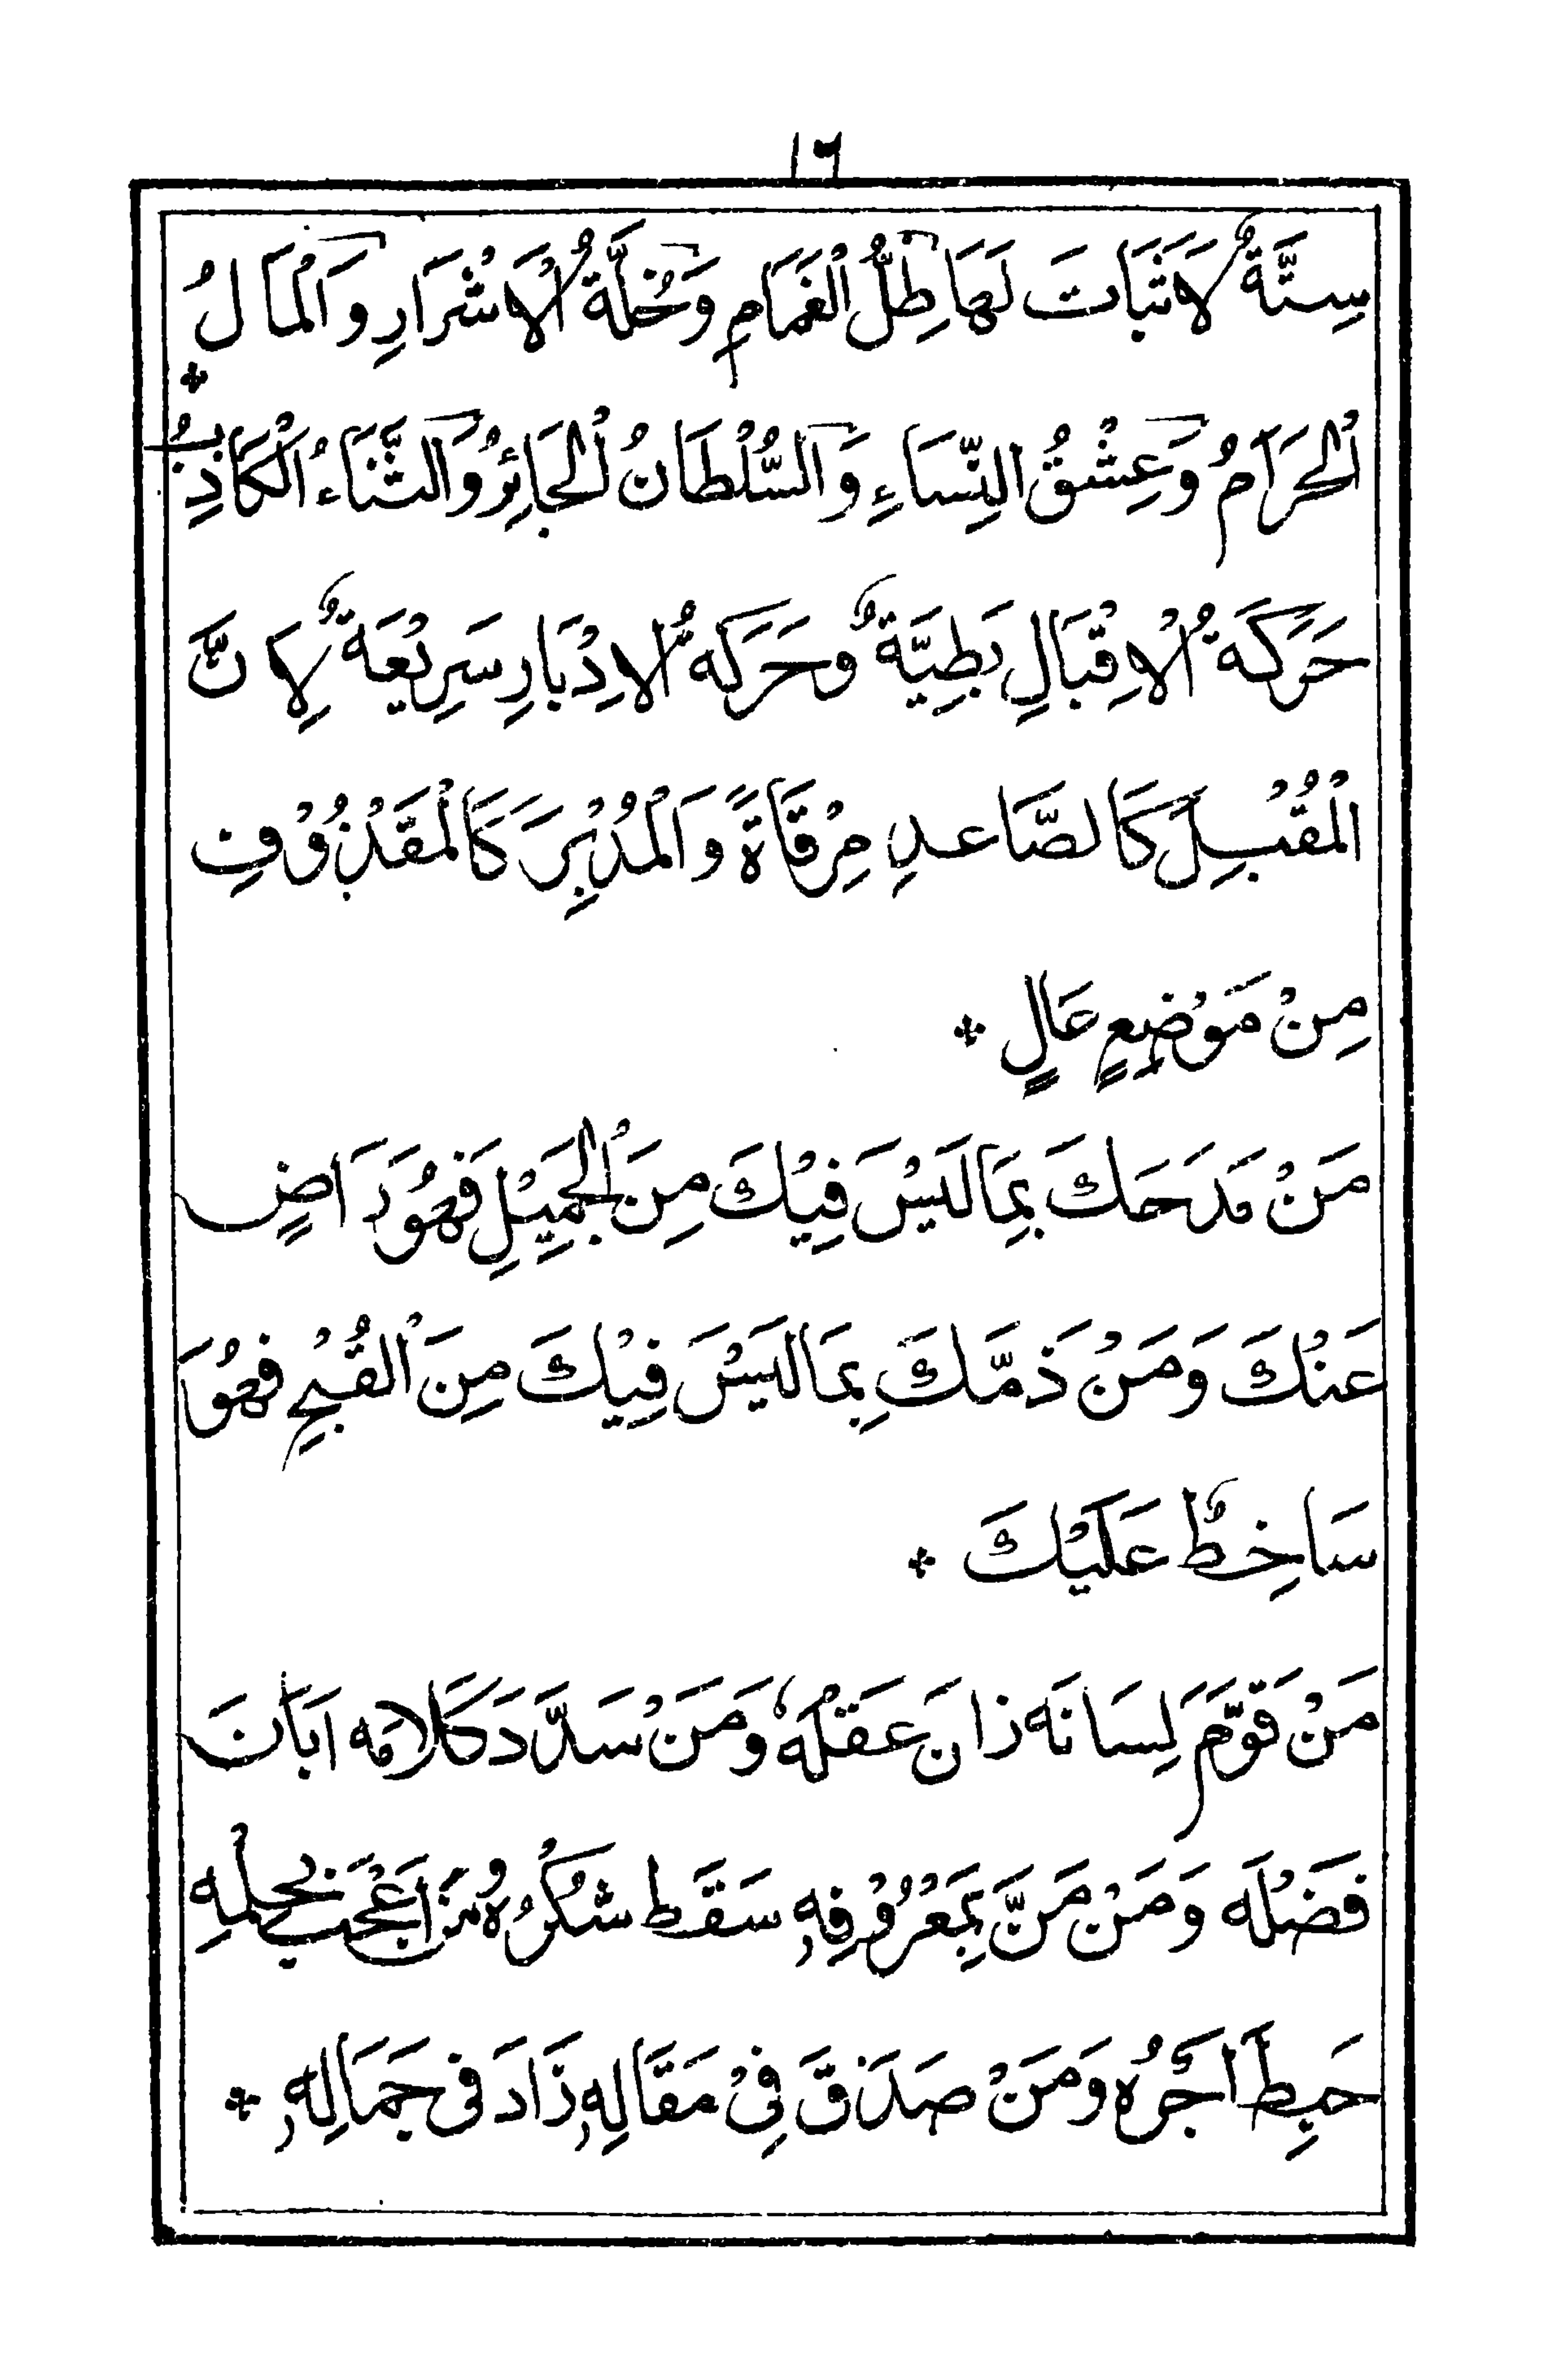 ١٦
سِتَّةٌ لَاثَبَاتَ لَهَا ظِلُّ الْغَمَامِ وَخُلَّةُ الْاَشْرَارِ وَالْمَالُ
الْحَرَامُ وَعِشْقُ النِّسَاءِ وَالسُّلْطَانُ الْجَائِرُ وَالثَّنَاءُ الْكَاذِبُ ❖
حَرَكَةُ الْاِقْبَالِ بَطِيَّةٌ وَحَرَكَةُ الْاِدْبَارِ سَرِيْعَةٌ لِاَنَّ
الْمُقْبِلَ كَالصَّاعِدِ مِرْقَاةً وَالْمُدْبِرَ كَالْمَقْذُوْفِ
مِنْ مَوْضِعٍ عَالٍ ❖
مَنْ مَدَحَكَ بِمَا لَيْسَ فِيْكَ مِنَ الْجَمِيْلِ فَهُوَ رَاضٍ
عَنْكَ وَمَنْ ذَمَّكَ بِمَا لَيْسَ فِيْكَ مِنَ الْقُبْحِ فَهُوَ
سَاخِطٌ عَلَيْكَ ❖
مَنْ قَوَّمَ لِسَانَه زَانَ عَقْلَهٗ وَمَنْ سَدَّدَ كَلَامَه اَبَانَ
فَضْلَه وَمَنْ مَنَّ بِمَعْرُوْفِهٖ سَقَطَ شُكْرُهُ مَنْ اَعْجَبَ بِحِلْمِهِ
حَبِطَ اَجْرُهُ وَمَنْ صَدَقَ فِيْ مَقَالِهٖ زَادَ فِى جَمَالِهٖ ❖